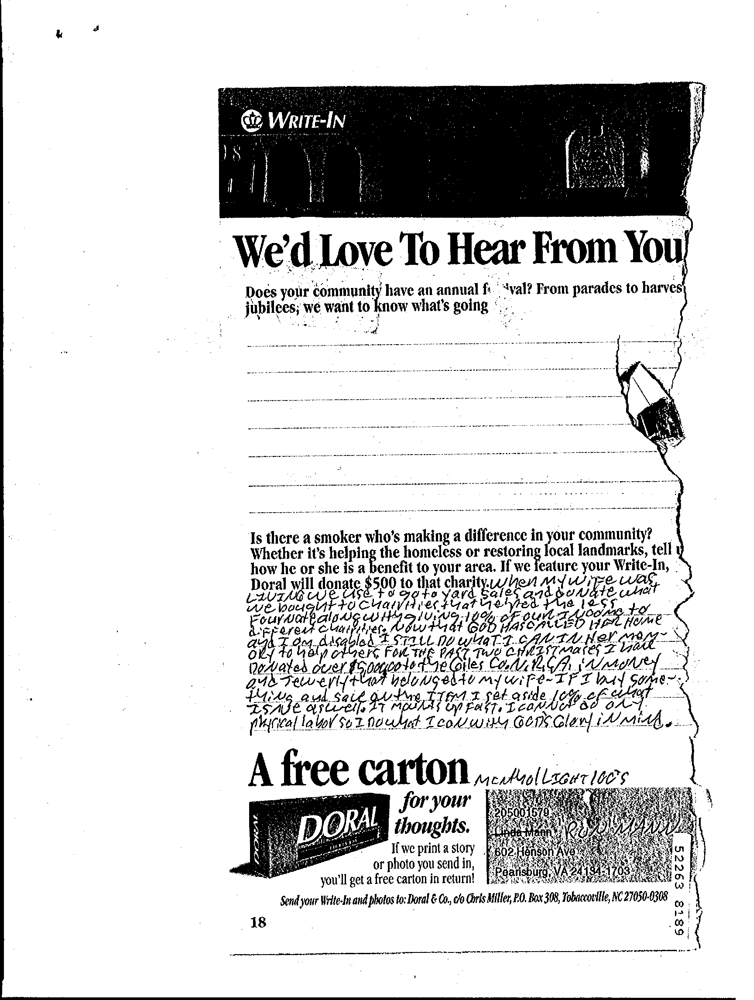 WRITE-IN
We'd Love To Hear From You
Does your community have an annual f val? From parades to harves
jubilees, we want to know what's going
Is there a smoker who's making a difference in your community?
Whether it's helping the homeless or restoring local landmarks, tell u
how he or she is a benefit to your area. If we feature your Write-In,
Doral will donate $500 to that charity. When my wife was
LIVING we use to go to yard sales and donate what
we bought to Chairities that helped the less
Fournate along with giving 10% of our INcome to
different Chairities. Now that GOD HAS CALLED HER Home
and I am disabled I STILL DO WHAT I CAN IN Her mem-
ory to help others FOR THE PAST TWO CHRISTMASES I have
Donated over to the Giles Co. IN money
and Jewerly that belonged to my wife. IF I buy some-
thing and sale on the ITEM I set aside 10% of what
I save as well. IT mounts up FAST. I CANNOT do any
physical labor so I do what I can with GOD'S Glory IN Mind.
A free carton Menthol LIGHT 100's
for your
thoughts.
DORAL
DORAL
If we print a story
or photo you send in,
you'll get a free carton in return!
205001579
Linda Mann
602 Henson Ave
Pearisburg, VA 24134-1703
Send your Write-In and photos to: Doral & Co., c/o Chris Miller, P.O. Box 308, Tobaccoville, NC 27050-0308
18
52263 8189